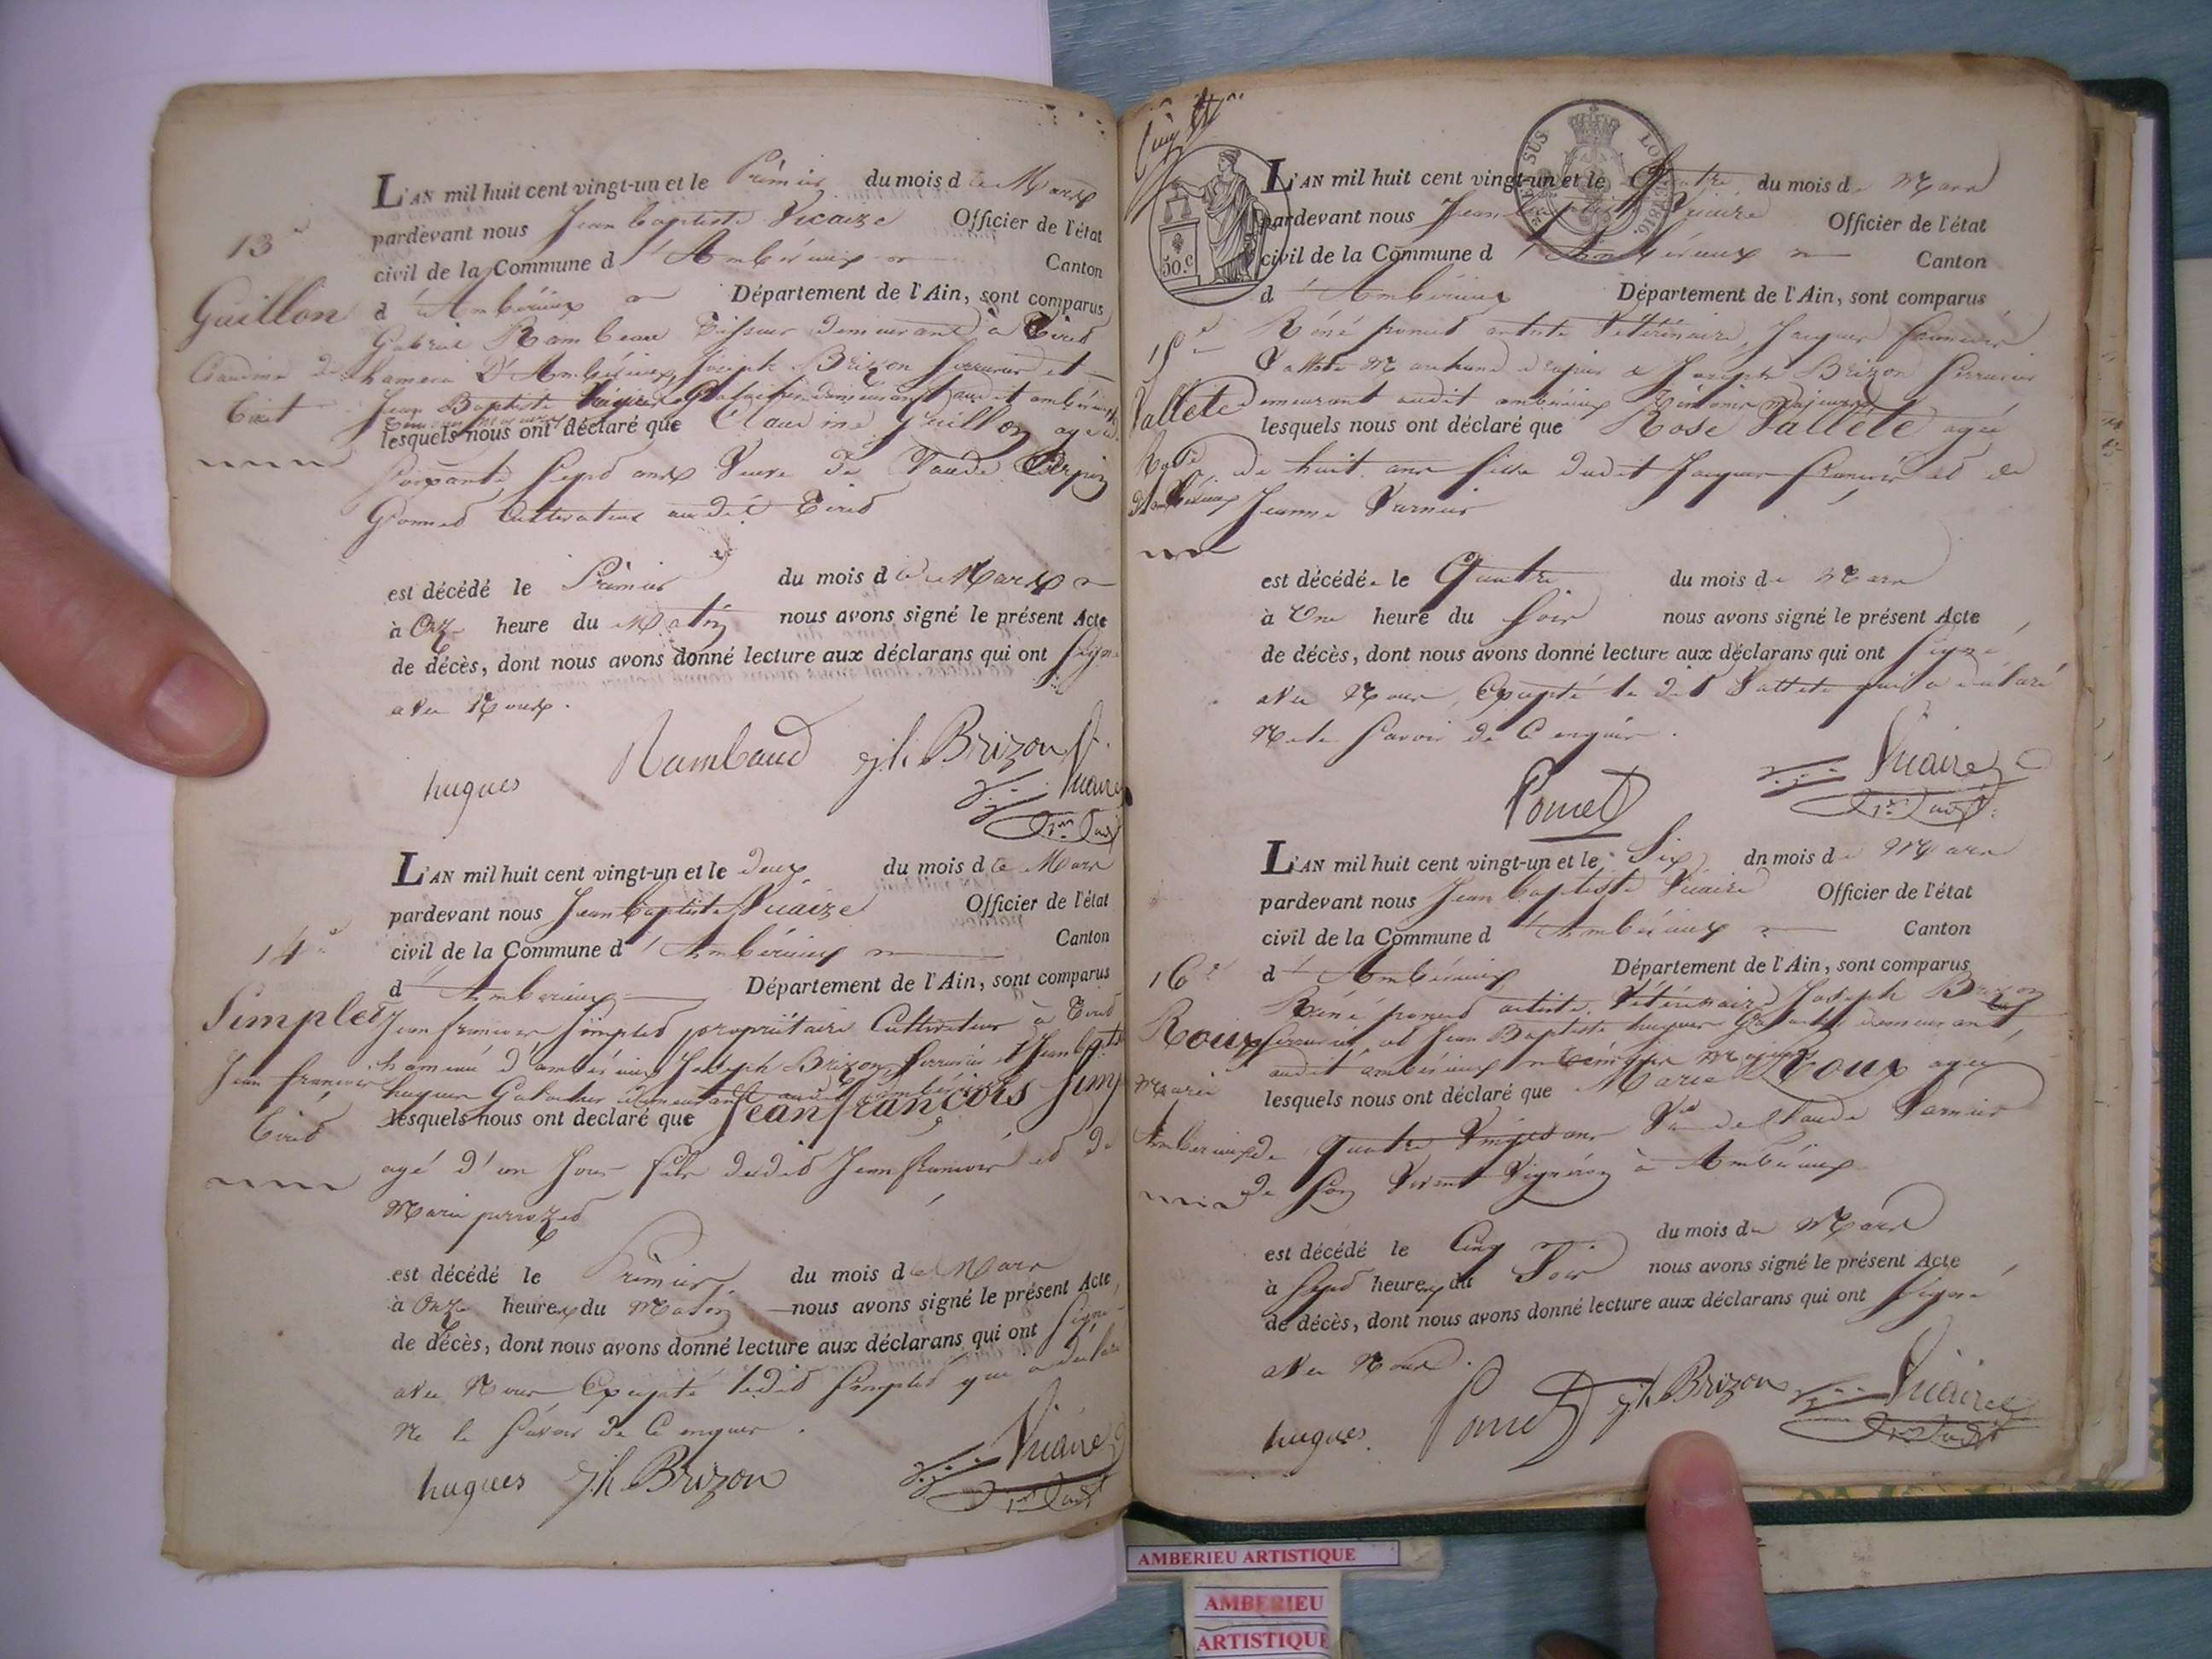 L'AN mil huit cent vingt-un et le Prémier du mois de Mars
pardevant nous Jean baptiste Vicaire Officier de l'état
13e
civil de la Commune d'Ambérieux Canton
Guillon
d'Ambérieux Département de l'Ain, sont comparus
Gabriel Rambeau demeurant à Tired
Claudine de
hameau D'Ambérieux, Joseph Brizon serrurier et
Tiret
Jean Baptiste demeurant audit ambérieux
lesquels nous ont déclaré que Claudine Guillon agée
soixante sept ans Veuve de Claude
cultivateur audit Tired
est décédé le Prémier du mois de Mars
à Onze heure du Matin nous avons signé le présent Acte
de décès, dont nous avons donné lecture aux déclarans qui ont signé
avec Nous.
hugues Rambaud jh. Brizon Vicaire
L'AN mil huit cent vingt-un et le deux du mois de Mars
pardevant nous Jean baptiste Vicaire Officier de l'état
14e
civil de la Commune d'Ambérieux Canton
d'Ambérieux Département de l'Ain, sont comparus
Simpled
Jean francois Simpled propriétaire Cultivateur à Tired
Jean francois
hameau d'ambérieux Joseph Brizon, serrurier et Jean bapte
hugues demeurant audit ambérieux
lesquels nous ont declaré que Jean francois Simp
Tired
agé d'un Jour fils dudid Jean francois et de
Marie perrozed
est décédé le Prémier du mois de Mars
à Onze heures du Matin nous avons signé le présent Acte
de décès, dont nous avons donné lecture aux déclarans qui ont signé
avec Nous Excepté ledid Simpled qui a déclaré
Ne le savoir de Ce enquis.
hugues jh. Brizon Vicaire
50.c
L'AN mil huit cent vingt-un et le Quatre du mois de Mars
pardevant nous Jean baptiste Vicaire Officier de l'état
civil de la Commune d'Ambérieux Canton
d'Ambérieux Département de l'Ain, sont comparus
15e
Réné poned artiste Vétérinaire, Jacques francois
Vallete Marchand drapier et Joseph Brizon serrurier
Vallete
demeurant audit ambérieux témoins majeurs
lesquels nous ont déclaré que Rose Vallete agée
Rose
de huit ans fille dudit Jacques francois et de
d'ambérieux
Jeanne Varnier
est décédée le Quatre du mois de Mars
à Une heure du soir nous avons signé le présent Acte
de décès, dont nous avons donné lecture aux déclarans qui ont signé
avec Nous, Excepté le dit Vallete qui a déclaré
Ne le savoir de Ce enquis.
Poncet Vicaire
L'AN mil huit cent vingt-un et le Six dn mois de Mars
pardevant nous Jean baptiste Vicaire Officier de l'état
civil de la Commune d'Ambérieux Canton
16e
d'Ambérieux Département de l'Ain, sont comparus
Réné poned artiste Vétérinaire Joseph Brizon
Roux
serrurier et Jean Baptiste hugues demeurant
audit ambérieux témoins Majeurs
Marie
lesquels nous ont déclaré que Marie Roux agée
Ambérieux
de quatre Vingts ans Ve de Claude Varnier
de son Vivant Vignéron à Ambérieux
est décédé le Cinq du mois de Mars
à sept heures du Soir nous avons signé le présent Acte
de décès, dont nous avons donné lecture aux déclarans qui ont signé
avec Nous.
hugues. Poncet jh. Brizon Vicaire
AMBERIEU ARTISTIQUE
AMBERIEU
ARTISTIQUE